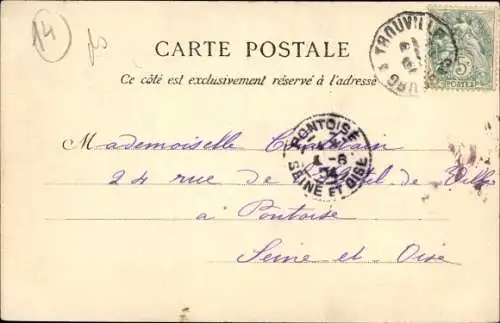 14
CARTE POSTALE
Ce côté est exclusivement réservé à l'adresse
TROUVILLE
5c
POSTES
PONTOISE
SEINE ET OISE
Mademoiselle
24 rue de l'Hôtel de Ville
à Pontoise
Seine et Oise